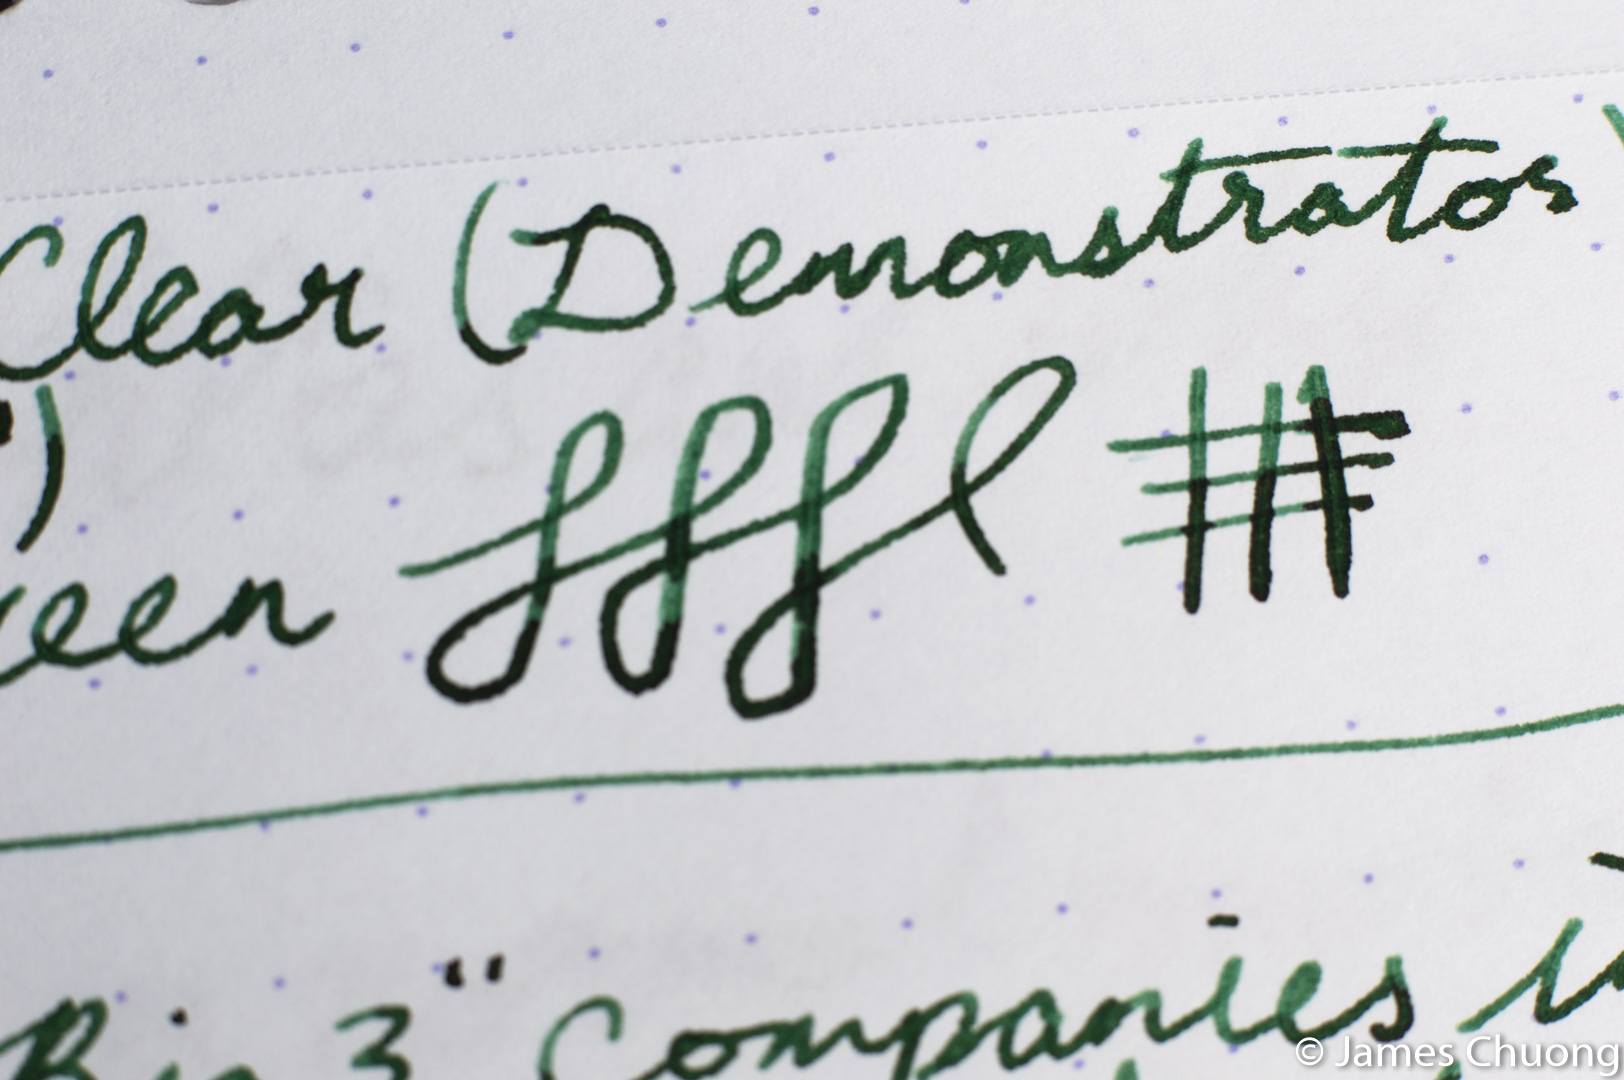 Clear (Demonstrator)
")
een fffl
Big 3" Companies
© James Chuong